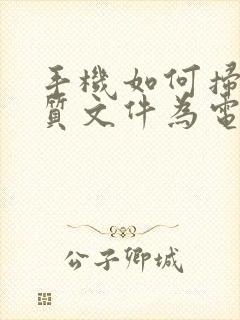 手機如何掃
質文件為電
公子卿城